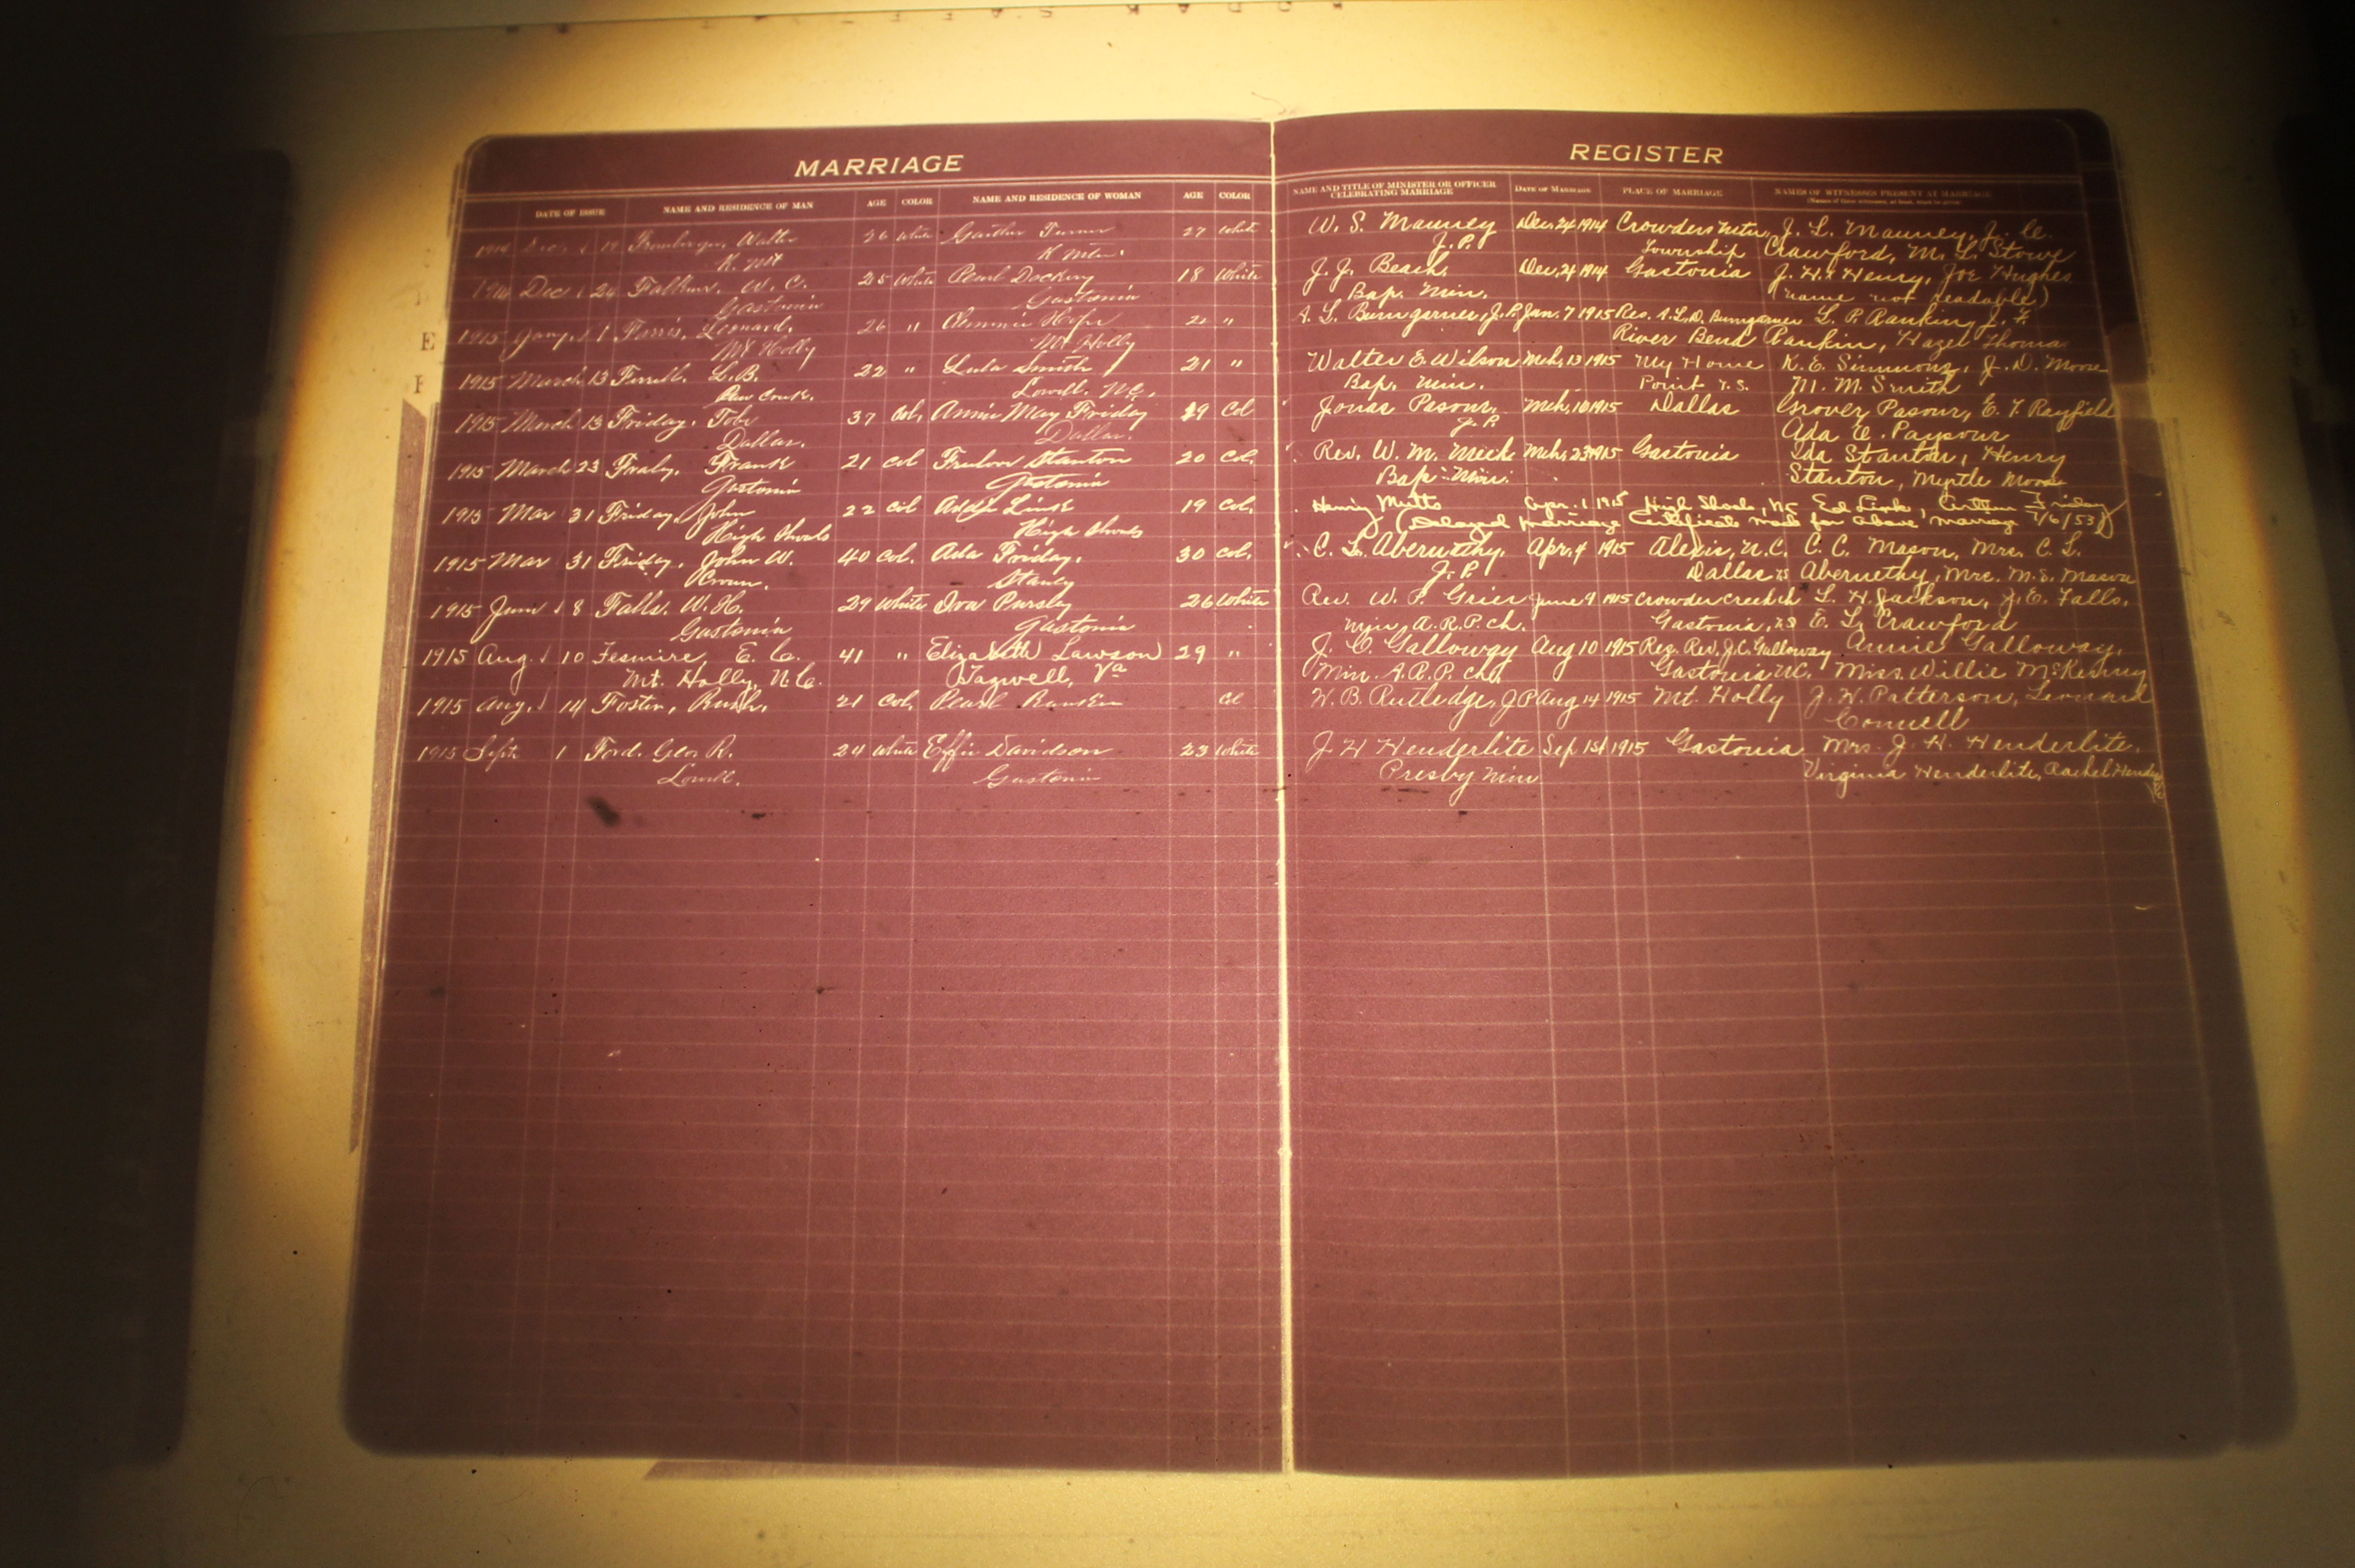 MARRIAGE
DATE OF ISSUE NAME AND RESIDENCE OF MAN AGE COLOR NAME AND RESIDENCE OF WOMAN AGE COLOR
1914 Dec 19 Walter 26 White Turner 27 White
K. Mt K Mtn.
1914 Dec 24 W. C. 25 White Pearl Dockery 18 White
Gastonia Gastonia
1915 Jany. 1 Farris, Leonard. 26 " Hope 21 "
Mt Holly Mt Holly
1915 March 13 L.B. 22 " Lula Smith 21 "
Lowell. N.C.
1915 March 13 Friday. Tobe 37 Col. Annie May Friday 19 Col
Dallas. Dallas.
1915 March 23 Fraly. Frank 21 Col Stanton 20 Col.
Gastonia Gastonia
1915 Mar 31 Friday, John 22 Col Addie Link 19 Col.
High Shoals High Shoals
1915 Mar 31 Friday. John W. 40 Col. Ada Friday. 30 Col.
Stanley
1915 June 8 Falls. W. H. 29 White Iva Pursley 26 White
Gastonia Gastonia
1915 Aug. 10 Fesmire, E. C. 41 " Elizabeth Lawson 29 "
Mt. Holly, N.C. Tazwell, Va
1915 Aug. 14 Foster, Rush. 21 Col. Pearl Rankin Col
1915 Sept 1 Ford. Geo. R. 24 White Effie Davidson 23 White
Lowell. Gastonia
REGISTER
NAME AND TITLE OF MINISTER OR OFFICER CELEBRATING MARRIAGE DATE OF MARRIAGE PLACE OF MARRIAGE NAMES OF WITNESSES PRESENT AT MARRIAGE
(Names of three witnesses, at least, must be given)
W. S. Mauney Dec. 24 1914 Crowders Mtn, J. L. Mauney, J. C.
J. P. Township Crawford, M. L. Stowe
J. J. Beach. Dec. 24 1914 Gastonia J. H. Henry, Joe Hughes
Bap. Min. (name not readable)
A. L. Bumgarner, J.P. Jan. 7 1915 Res. A.L.D. Bumgarner L. P. Rankin, J. F.
River Bend Rankin, Hazel Thomas
Walter E. Wilson Mch. 13 1915 My Home K. E. Simmons, J. D. Moore
Bap. Min. Point T.S. M. M. Smith
Jonas Pasour, Mch. 1915 Dallas Grover Pasour, E. F. Rayfield
J. P. Ada E. Paysour
Rev. W. M. Mch. 23 1915 Gastonia Ida Stanton, Henry
Bap. Min. Stanton, Myrtle Moore
Apr. 1 1915 High Shoals, NC Ed Link, Friday
(Delayed marriage Certificate made for above marriage 7/6/53)
C. L. Abernethy. Apr. 4 1915 Alexis, N.C. C. C. Mason, Mrs. C. L.
J. P. Dallas TS Abernethy, Mrs. M. E. Mason
Rev. W. P. Grier June 9 1915 Crowder Creek ch L. H. Jackson, J. E. Falls,
Min, A.R.P. ch. Gastonia, TS E. L. Crawford
J. C. Galloway Aug 10 1915 Res. Rev. J.C. Galloway Annie Galloway,
Min. A.R.P. ch. Gastonia NC. Miss Willie
W. B. Rutledge, JP Aug 14 1915 Mt. Holly J. W. Patterson, Leonard
J. H Henderlite Sep 1st 1915 Gastonia Mrs. J. H. Henderlite,
Presby Min Virginia Henderlite, Rachel